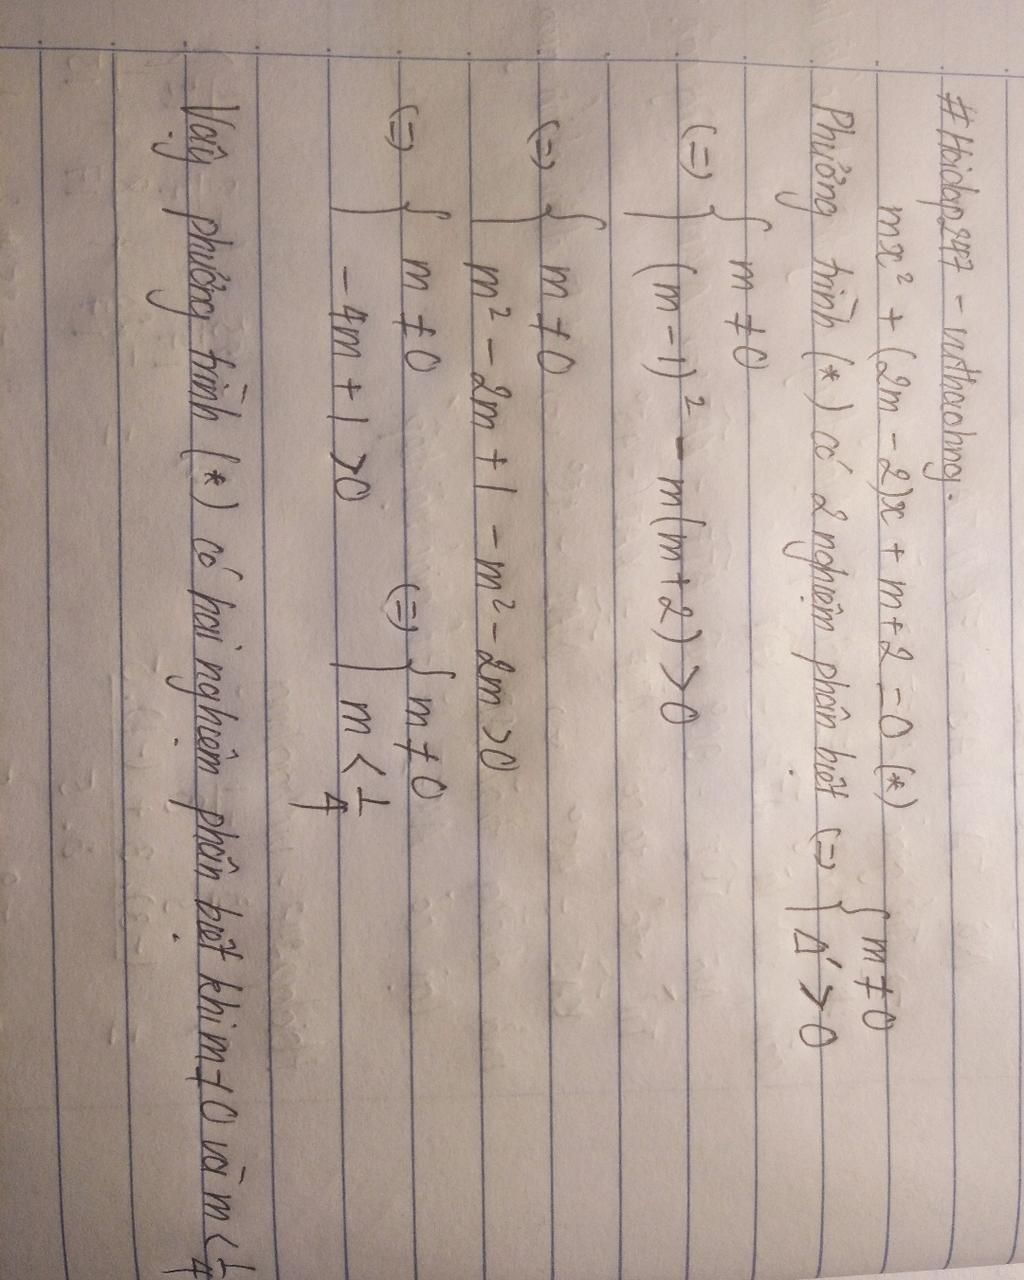 #Hoidap247 - vuthaohng.
mx² + (2m - 2)x + m + 2 = 0 (*)
Phương trình (*) có 2 nghiệm phân biệt (=) { m ≠ 0
Δ' > 0
(=) { m ≠ 0
(m - 1)² - m(m + 2) > 0
(=) { m ≠ 0
m² - 2m + 1 - m² - 2m > 0
(=) { m ≠ 0 (=) { m ≠ 0
-4m + 1 > 0 m < 1/4
Vậy phương trình (*) có hai nghiệm phân biệt khi m ≠ 0 và m < 1/4